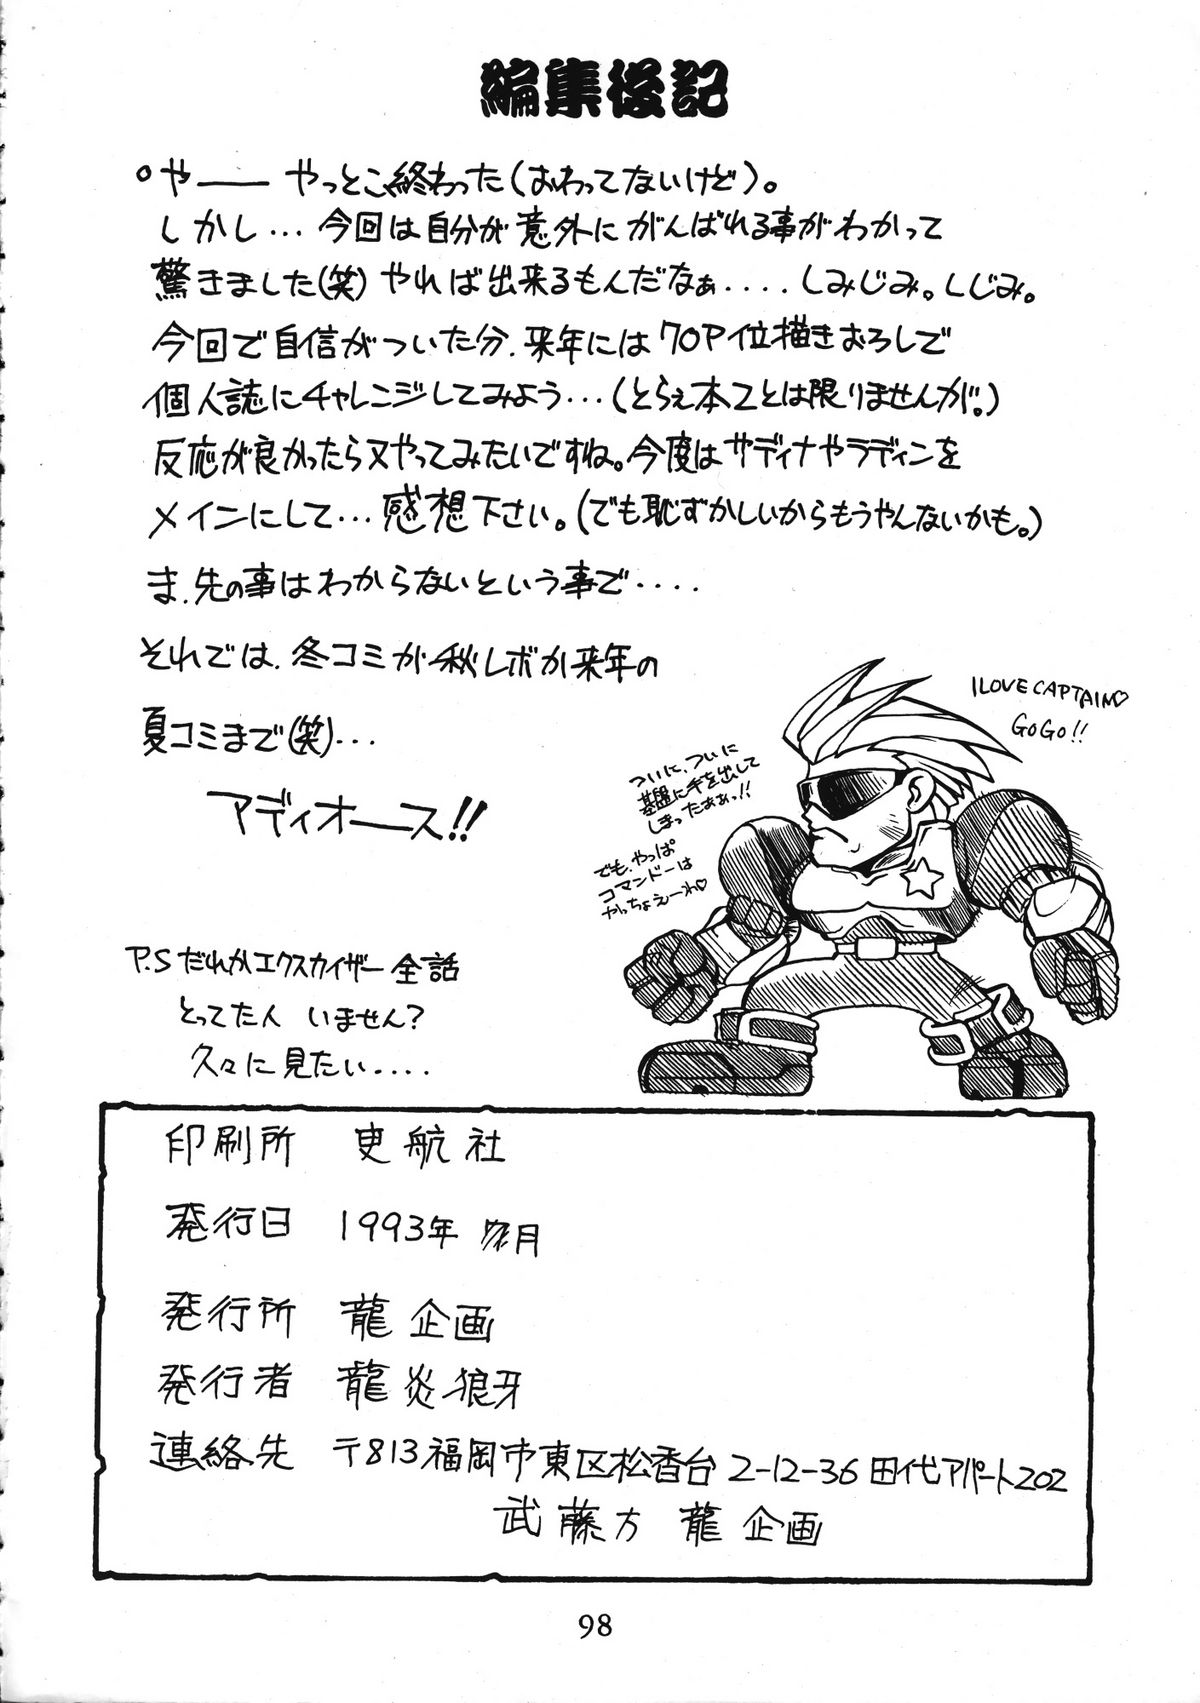 編集後記
。や―― やっとこ終わった(おわってないけど)。
しかし… 今回は自分が意外にがんばれる事がわかって
驚きました(笑) やれば出来るもんだなぁ....しみじみ。しじみ。
今回で自信がついた分、来年には70P位描きおろしで
個人誌にチャレンジしてみよう…(とらぇ本2とは限りませんが。)
反応が良かったら又やってみたいですね。今度はサディナやラディンを
メインにして… 感想下さい。(でも恥ずかしいからもうやんないかも。)
ま、先の事はわからないという事で....
それでは、冬コミか秋レボか来年の
夏コミまで(笑)…
アディオース!!
I LOVE CAPTAIN♡
GOGO!!
ついに、ついに
基盤に手を出して
しまったぁぁっ!!
でも、やっぱ
コマンドーは
やっちょえーわ♡
P.S だれかエクスカイザー全話
とってた人 いません?
久々に見たい....
印刷所 吏航社
発行日 1993年 月
発行所 龍企画
発行者 龍炎狼牙
連絡先 〒813 福岡市東区松香台 2-12-36 田代アパート202
武藤方 龍企画
98